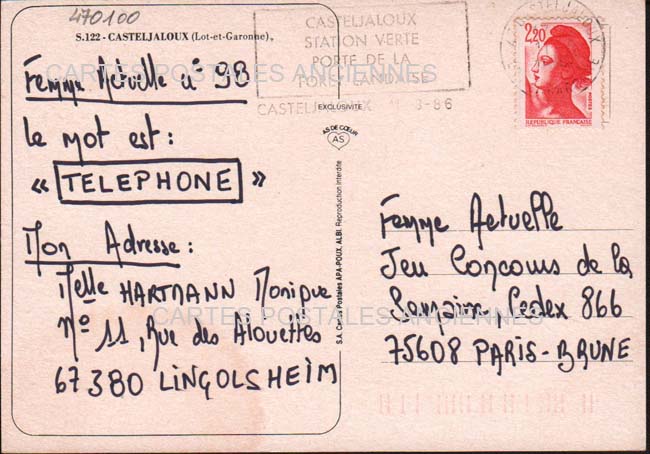 470100
S.122 - CASTELJALOUX (Lot-et-Garonne).
Femme Actuelle n° 98
Le mot est :
« TELEPHONE »
Mon Adresse :
Melle HARTMANN Monique
N° 11, Rue des Alouettes
67 380 LINGOLSHEIM
EXCLUSIVITE
AS DE CŒUR
APA
S.A. Cartes Postales APA-POUX, ALBI. Reproduction Interdite
CASTELJALOUX
STATION VERTE
PORTE DE LA
FORET LANDAISE
CASTELJALOUX 3-86
CASTELJALOUX
2,20
POSTES
REPUBLIQUE FRANÇAISE
Femme Actuelle
Jeu Concours de la
Semaine, Cedex 866
75608 PARIS-BRUNE
CARTES POSTALES ANCIENNES
CARTES POSTALES ANCIENNES